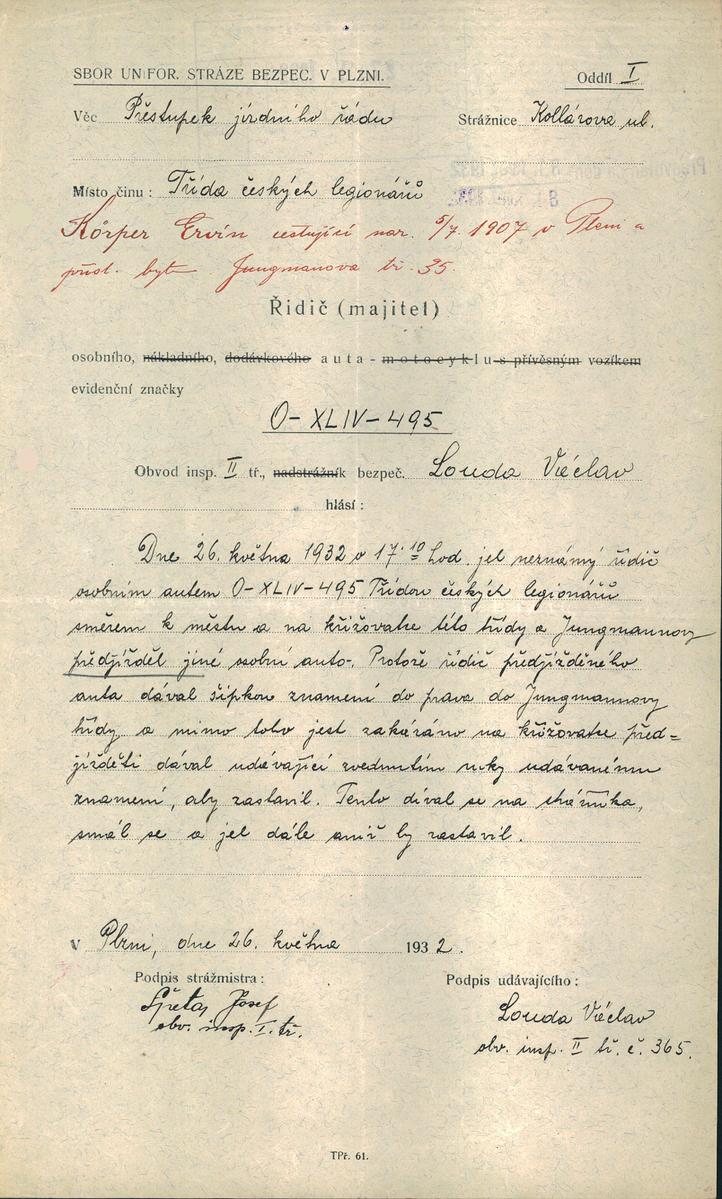 SBOR UNIFOR. STRÁŽE BEZPEC. V PLZNI.
Oddíl I
Věc Přestupek jízdního řádu
Strážnice Kollárova ul.
Místo činu: Třída českých legionářů
Körper Ervín cestující nar. 5/7. 1907 v Plzni a
přísl. byt. Jungmanova tř. 35.
Řidič (majitel)
osobního, nákladního, dodávkového auta - motocyklu s přívěsným vozíkem
evidenční značky
O-XLIV-495
Obvod insp. II tř., nadstrážník bezpeč. Louda Václav
hlásí:
Dne 26. května 1932 v 17.10 hod. jel neznámý řidič
osobním autem O-XLIV-495 Třídou českých legionářů
směrem k městu a na křižovatce této třídy a Jungmannovy
předjížděl jiné osobní auto. Protože řidič předjížděného
auta dával šipkou znamení do prava do Jungmannovy
třídy a mimo toho jest zakázáno na křižovatce před=
jížděti dával udávající zvednutím ruky udávanému
znamení, aby zastavil. Tento díval se na strážníka,
smál se a jel dále aniž by zastavil.
V Plzni, dne 26. května 1932.
Podpis strážmistra:
Podpis udávajícího:
Josef
obv. insp. I. tř.
Louda Václav
obv. insp. II tř. č. 365.
TPř. 61.